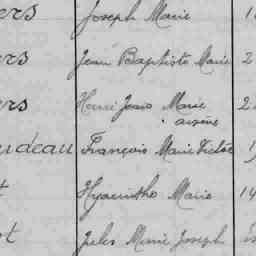 ers Joseph Marie 1
ers Jean Baptiste Marie 2
ers Henri Marie 2
deau François Marie Victor 1
t Hyacinthe Marie 14
ot Jules Marie Joseph